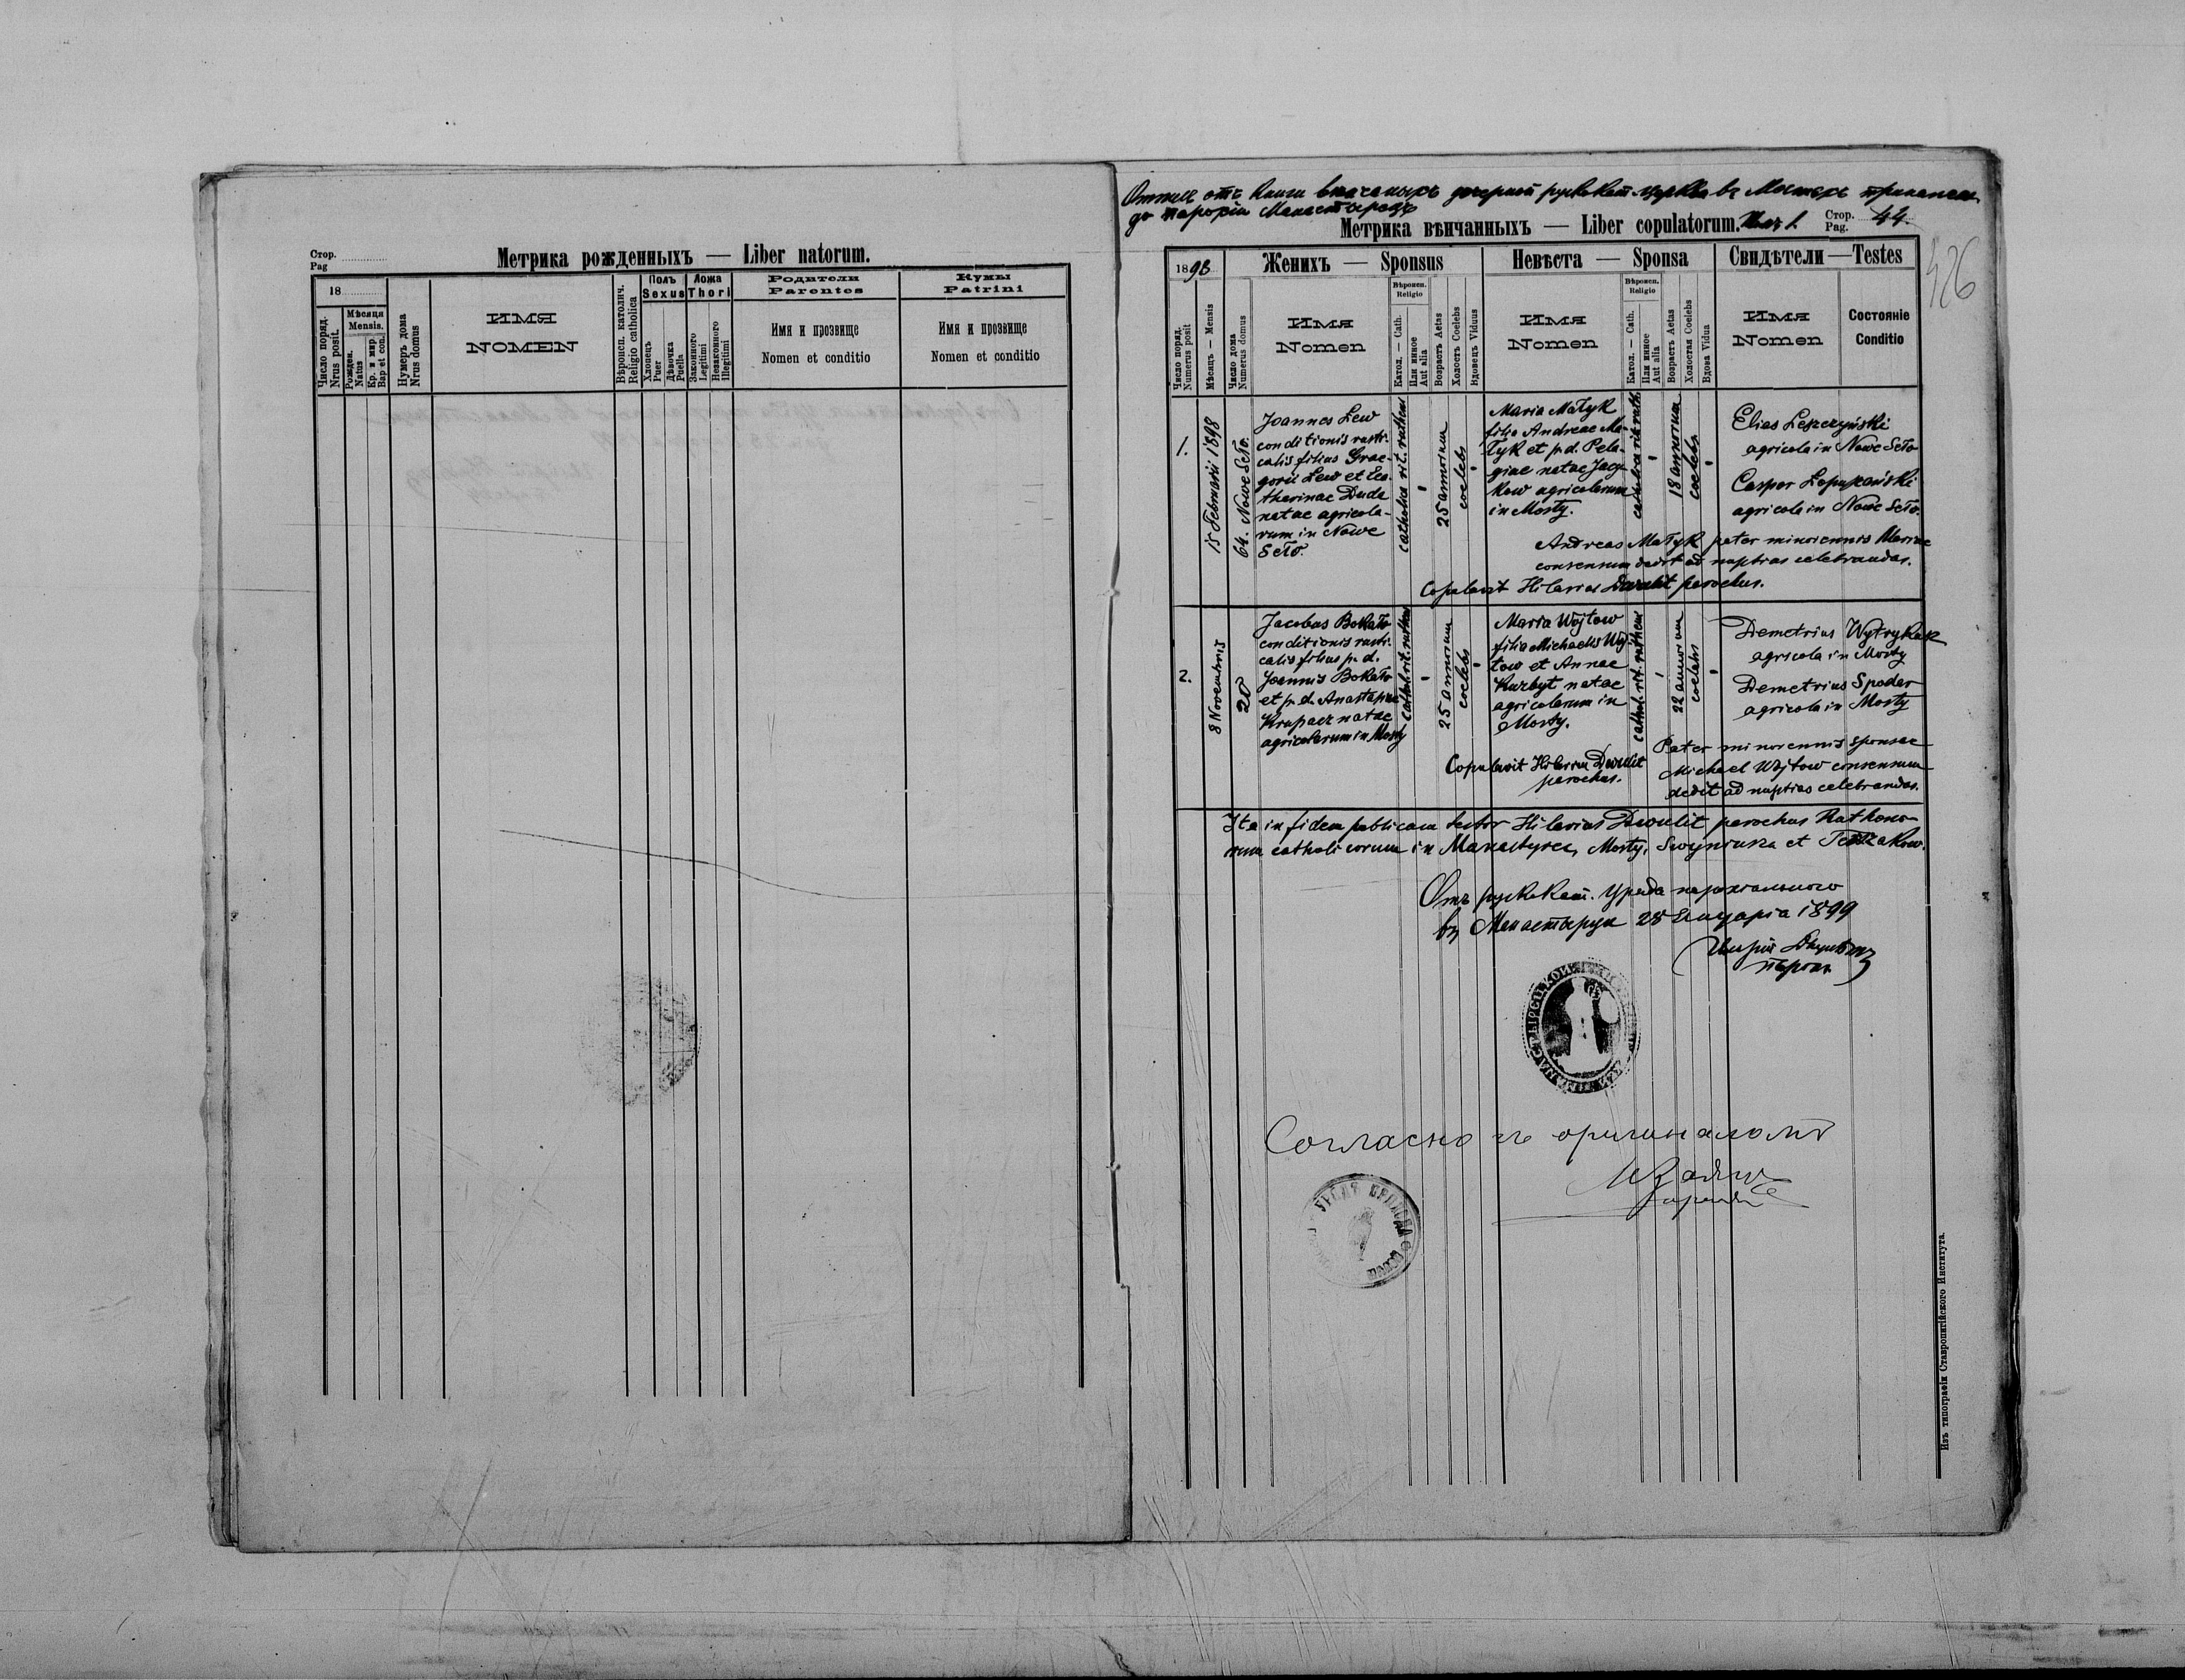 Стор.
Pag
Метрика рожденныхъ — Liber natorum.
18
Число поряд.
Nrus posit.
Мѣсяця
Mensis.
Рожден.
Natus
Кр. и мир.
Bap et con.
Нумеръ дома
Nrus domus
ИМЯ
NOMEN
Вѣроисп. католич.
Religio catholica
Полъ
Sexus
Хлопецъ
Puer
Дѣвочка
Puella
Ложа
Thori
Законного
Legitimi
Незаконного
Illegitimi
Родители
Parentes
Имя и прозвище
Nomen et conditio
Кумы
Patrini
Имя и прозвище
Nomen et conditio
отъ книги дочерной церкви въ
до парохіи
Метрика вѣнчанныхъ — Liber copulatorum.
Стор.
Pag. 44.
426
1898
Число поряд.
Numerus posit
Мѣсяцъ — Mensis
Число дома
Numerus domus
Женихъ — Sponsus
Имя
Nomen
Вѣроисп.
Religio
Катол. — Cath.
Или инное
Aut alia
Возрастъ Aetas
Холостъ Coelebs
Вдовецъ Viduus
Невѣста — Sponsa
Имя
Nomen
Вѣроисп.
Religio
Катол. — Cath.
Или инное
Aut alia
Возрастъ Aetas
Холостая Coelebs
Вдова Vidua
Свидѣтели — Testes
Имя
Nomen
Состояніе
Conditio
1.
15 Februarii 1898
64. Nowe Sеło.
Joannes Lew
conditionis rusti-
calis filius Gre-
gorii Lew et Ca-
tharinae Duda
natae agricola-
rum in Nowe
Sеło.
catholica rit. ruthen
25 annorum
coelebs
Maria Matyk
filia Andreae Ma-
tyk et p.d. Pela-
giae natae Jacy-
kow agricolarum
in Mosty.
catholica rit. ruth.
18 annorum
coelebs
Elias Leszczyński
agricola in Nowe Sеło
Caspar Łopuszański
agricola in Nowe Sеło.
Andreas Matyk pater minorennis Mariae
consensum dedit ad nuptias celebrandas.
Copulavit Hilarius Dwulit parochus.
2.
8 Novembris
20
Jacobus Bokało
conditionis rusti-
calis filius p. d.
Joannis Bokało
et p. d. Anastasiae
Krupacz natae
agricolarum in Mosty
cathol. rit. ruthen
25 annorum
coelebs
Maria Wojtow
filia Michaelis Woj-
tow et Annae
Kurbyt natae
agricolarum in
Mosty.
cathol. rit. ruthen
22 annorum
coelebs
Demetrius Wytrykusz
agricola in Mosty
Demetrius Spodar
agricola in Mosty
Copulavit Hilarius Dwulit
parochus.
Pater minorennis sponsae
Michael Wojtow consensum
dedit ad nuptias celebrandas.
Ita in fidem publicam testor Hilarius Dwulit parochus Rutheno-
rum catholicorum in Manastyrec, Mosty, et
Отъ руск. кат. уряда парохіального
въ 28 Януарія 1899
Согласно съ оригиналомъ
Изъ типографіи Ставропигійского Института.